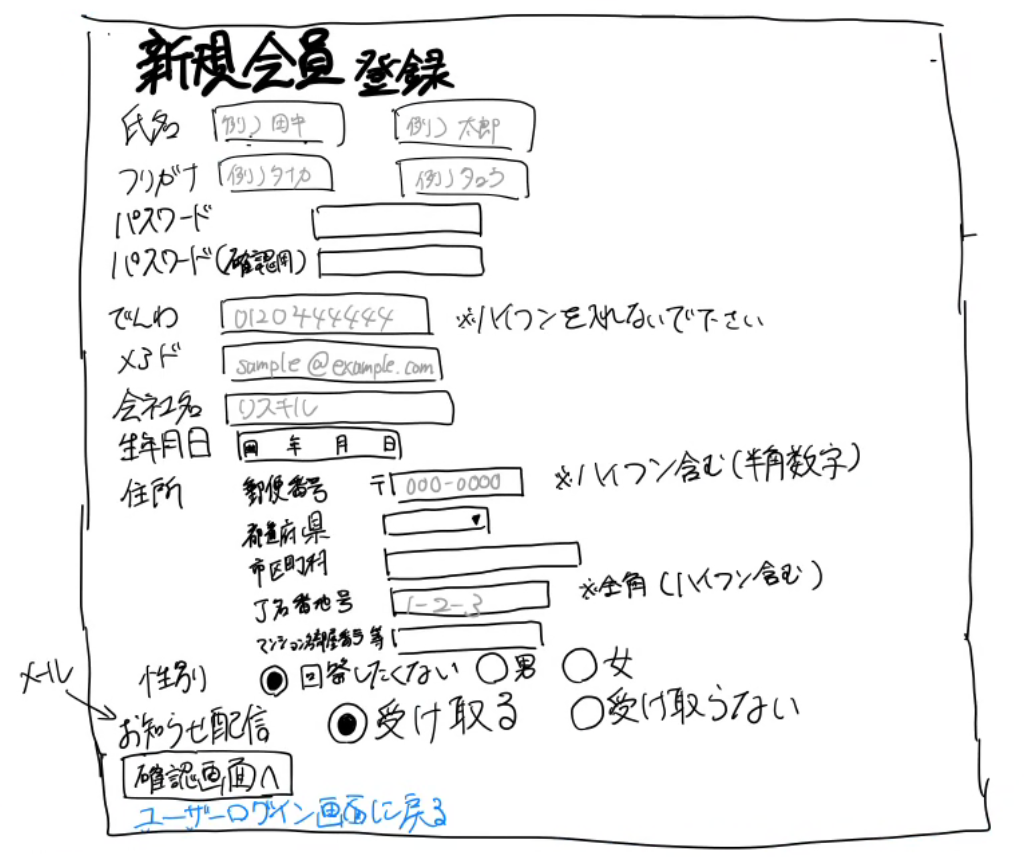 新規会員登録
氏名 例）田中 例）太郎
フリガナ 例）タナカ 例）タロウ
パスワード
パスワード（確認用）
でんわ 0120444444 ※ハイフンを入れないで下さい
メアド sample@example.com
会社名 リスキル
生年月日 年 月 日
住所 郵便番号 〒 000-0000 ※ハイフン含む（半角数字）
都道府県
市区町村
丁名番地号 1-2-3 ※全角（ハイフン含む）
マンション名部屋番号等
性別 回答したくない 男 女
メール
お知らせ配信 受け取る 受け取らない
確認画面へ
ユーザーログイン画面に戻る